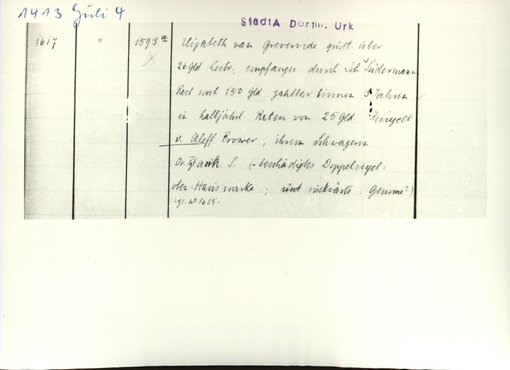 1413 Juli 4
StadtA Dortm. Urk
1617 " 1593a Elisabeth van Greverode quitt. über
26 Gld Leibr. empfangen durch Joh. Südermann
Rest noch 150 Gld zahlbar binnen 3 Jahren
in halbjährl. Raten von 25 Gld
v. Aleff Brower, ihrem Schwagern
Or. S. (beschädigtes Doppelsiegel
oben: Hausmarke; rückwärts Gemme?)